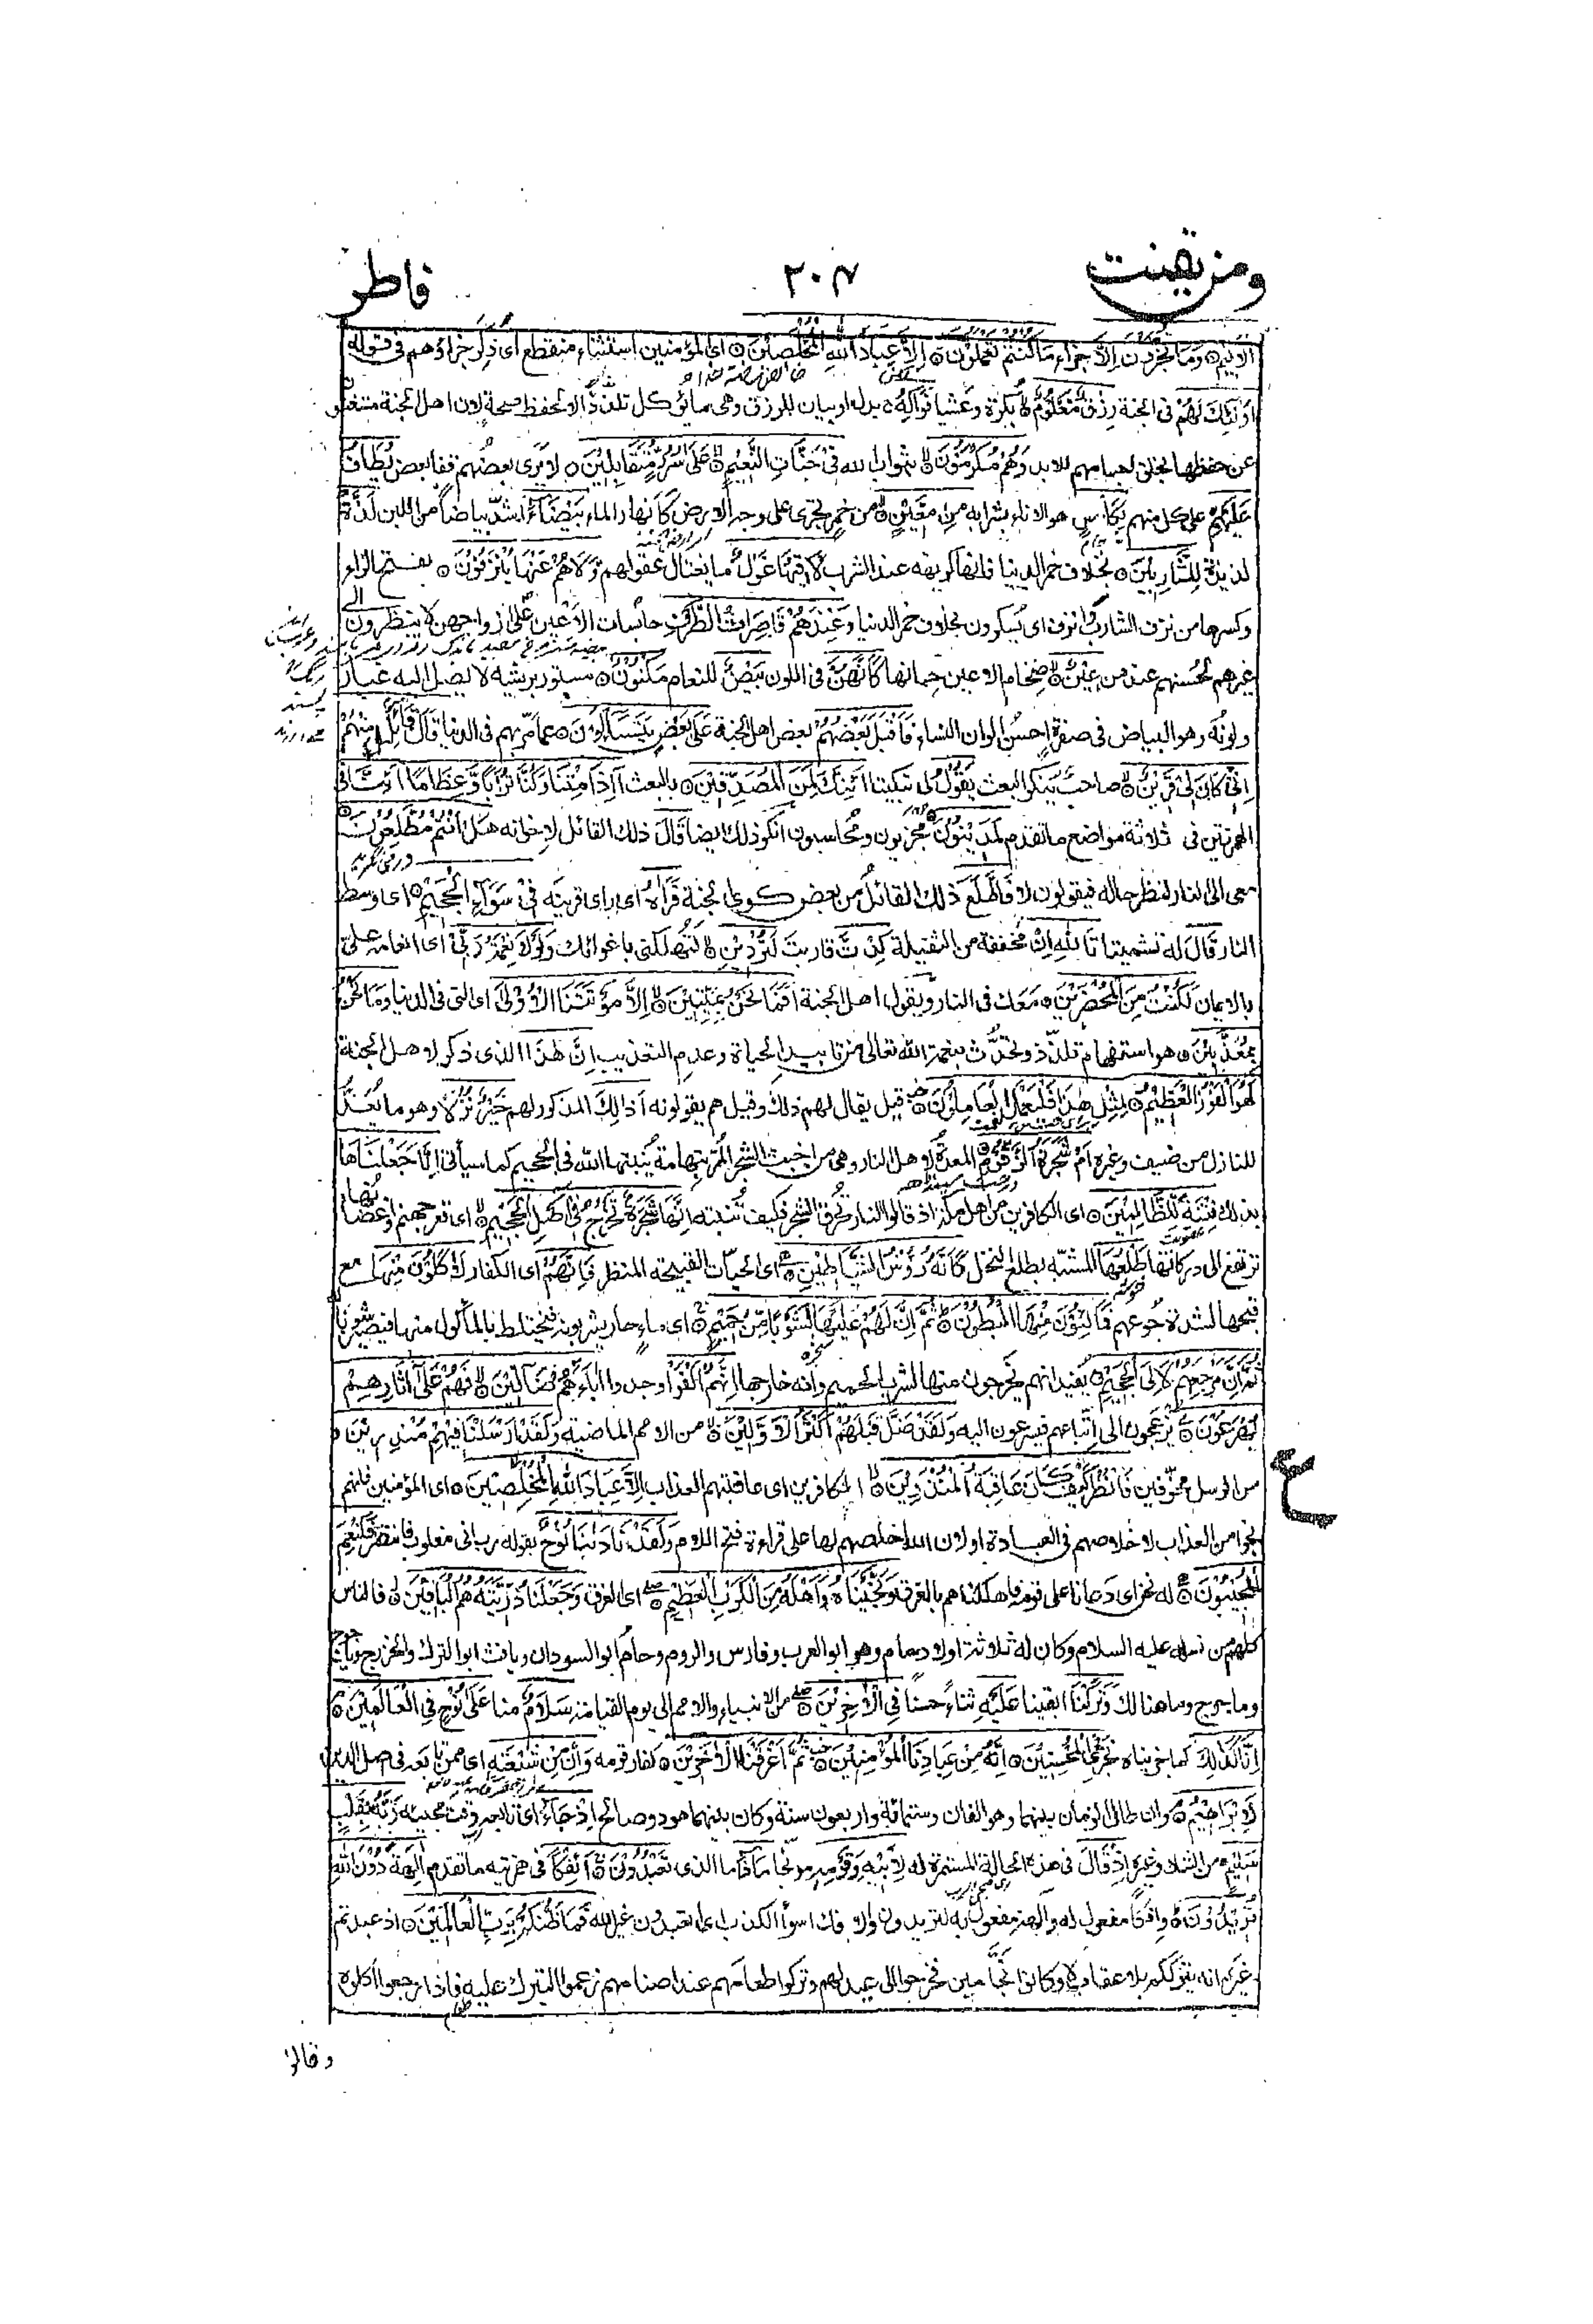 ومن يقنت
٣٠٧
فاطر
الاليم وما تجزون الا جزاء ما كنتم تعملون الا عباد الله المخلصين اى المؤمنين استثناء منقطع اى ذكر جزاؤهم فى قوله
اولئك لهم فى الجنة رزق معلوم بكرة وعشيا فواكه بدل او بيان للرزق وهى ما يؤكل تلذذا لا لحفظ صحة لان اهل الجنة مستغنون
عن حفظها بخلق اجسامهم للابد وهم مكرمون بثواب الله فى جنات النعيم على سرر متقابلين لا يرى بعضهم قفا بعض يطاف
عليهم على كل منهم بكأس هو الاناء بشرابه من معين من خمر تجرى على وجه الارض كانهار الماء بيضاء اشد بياضا من اللبن لذة
لذيذة للشاربين بخلاف خمر الدنيا فانها كريهة عند الشرب لا فيها غول ما يغتال عقولهم ولا هم عنها ينزفون بفتح الزاء
وكسرها من نزف الشارب وانزف اى يسكرون بخلاف خمر الدنيا وعندهم قاصرات الطرف حابسات الاعين على ازواجهن لا ينظرون الى
غيرهم لحسنهم عندهن عين ضخام الاعين حسانها كانهن فى اللون بيض للنعام مكنون مستور بريشه لا يصل اليه غبار
ولونه وهو البياض فى صفرة احسن الوان النساء فاقبل بعضهم بعض اهل الجنة على بعض يتساءلون عما مر بهم فى الدنيا قال قائل منهم
انى كان لى قرين صاحب ينكر البعث يقول لى تبكيتا ائنك لمن المصدقين بالبعث ءاذا متنا وكنا ترابا وعظاما ءانا فى
الهمزتين فى ثلاثة مواضع ما تقدم لمدينون مجزيون ومحاسبون انكر ذلك ايضا قال ذلك القائل لاخوانه هل انتم مطلعون
معى الى النار لننظر حاله فيقولون لا فاطلع ذلك القائل من بعض كوى الجنة فرآه اى راى قرينه فى سواء الجحيم اى وسط
النار قال له تشميتا تالله ان مخففة من الثقيلة كدت قاربت لتردين لتهلكنى باغوائك ولولا نعمة ربى اى انعامه على
بالايمان لكنت من المحضرين معك فى النار ويقول اهل الجنة افما نحن بميتين الا موتتنا الاولى اى التى فى الدنيا وما نحن
بمعذبين هو استفهام تلذذ وتحدث بنعمة الله تعالى من تابيد الحياة وعدم التعذيب ان هذا الذى ذكر لاهل الجنة
لهو الفوز العظيم لمثل هذا فليعمل العاملون قيل يقال لهم ذلك وقيل هم يقولونه اذلك المذكور لهم خير نزلا وهو ما يعد
للنازل من ضيف وغيره ام شجرة الزقوم المعدة لاهل النار وهى من اخبث الشجر المر بتهامة ينبتها الله فى الجحيم كما سيأتى انا جعلناها
بذلك فتنة للظالمين اى الكافرين من اهل مكة اذ قالوا النار تحرق الشجر فكيف تنبته انها شجرة تخرج فى اصل الجحيم اى قعر جهنم واغصانها
ترتفع الى دركاتها طلعها المشبه بطلع النخل كانه رؤس الشياطين اى الحيات القبيحة المنظر فانهم اى الكفار لآكلون منها مع
قبحها لشدة جوعهم فمالئون منها البطون ثم ان لهم عليها لشوبا من حميم اى ماء حار يشربونه فيختلط بالمأكول منها فيصير شوبا
ثم ان مرجعهم لالى الجحيم يفيد انهم يخرجون منها لشرب الحميم وانه خارجها انهم الفوا وجدوا اباءهم ضالين فهم على اثارهم
يهرعون يزعجون الى اتباعهم فيسرعون اليه ولقد ضل قبلهم اكثر الاولين من الامم الماضية ولقد ارسلنا فيهم منذرين
من الرسل مخوفين فانظر كيف كان عاقبة المنذرين الكافرين اى عاقبتهم العذاب الا عباد الله المخلصين اى المؤمنين فانهم
نجوا من العذاب لاخلاصهم فى العبادة او لان الله اخلصهم لها على قراءة فتح اللام ولقد نادٰىنا نوح بقوله رب انى مغلوب فانتصر فلنعم
المجيبون له نحن اى دعانا على قومه فاهلكناهم بالغرق ونجيناه واهله من الكرب العظيم اى الغرق وجعلنا ذريته هم الباقين فالناس
كلهم من نسله عليه السلام وكان له ثلاثة اولاد سام وهو ابو العرب وفارس والروم وحام ابو السودان ويافث ابو الترك والخزرج وياجوج
وماجوج وما هنالك وتركنا ابقينا عليه ثناء حسنا فى الاخرين من الانبياء والامم الى يوم القيامة سلام منا على نوح فى العالمين
انا كذلك كما جزيناه نجزى المحسنين انه من عبادنا المؤمنين ثم اغرقنا الاخرين كفار قومه وان من شيعته اى ممن تابعه فى اصل الدين
لابراهيم وان طال الزمان بينهما وهو الفان وستمائة واربعون سنة وكان بينهما هود وصالح اذ جاء اى تابعه وقت مجيئه ربه بقلب
سليم من الشك وغيره اذ قال فى هذه الحالة المستمرة له لابيه وقومه موبخا ماذا ما الذى تعبدون ائفكا فى همزتيه ما تقدم الهة دون الله
تريدون وافكا مفعول له والهة مفعول به لتريدون والافك اسوأ الكذب اى اتعبدون غير الله فما ظنكم برب العالمين اذ عبدتم
غيره انه يترككم بلا عقاب لا وكانوا نجامين فخرجوا الى عيد لهم وتركوا طعامهم عند اصنامهم زعموا التبرك عليه فاذا رجعوا اكلوه
ع
وقالوا